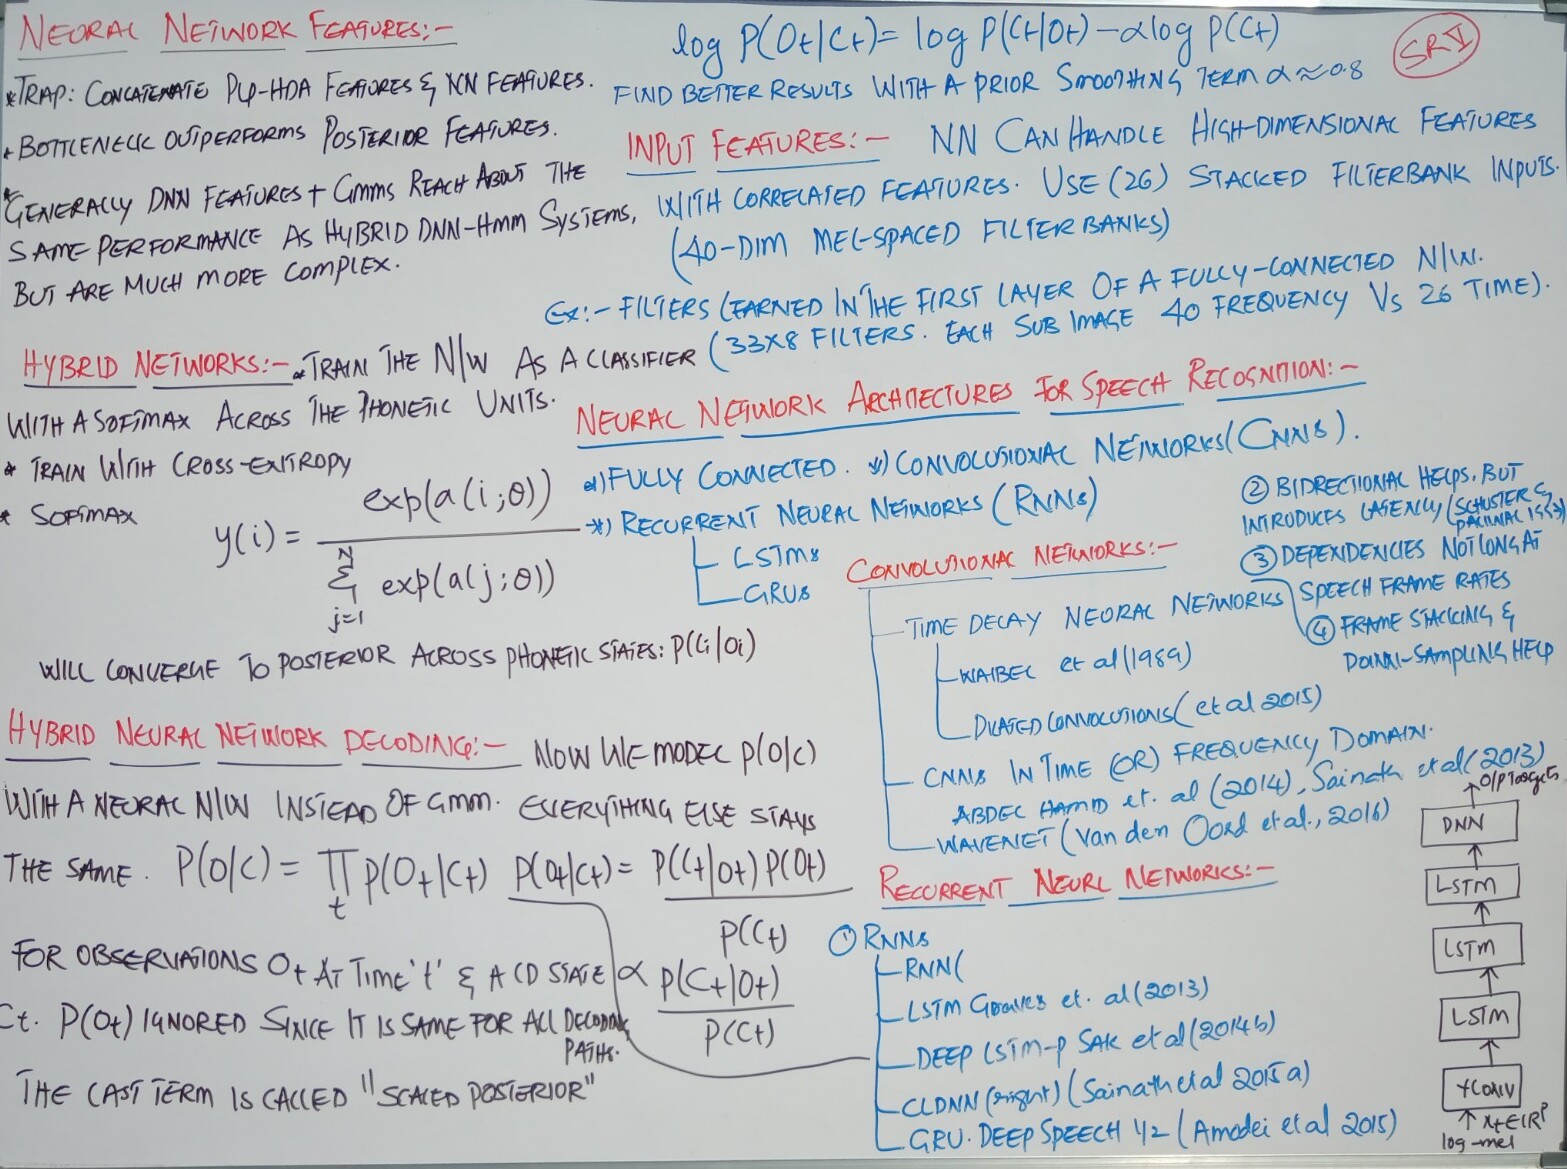 NEORAL NETWORK FEATURES:-
*TRAP: CONCATENATE PLP-HDA FEATURES & NN FEATURES.
* BOTTLENECK OUTPERFORMS POSTERIOR FEATURES.
* GENERALLY DNN FEATURES + GMMS REACH ABOUT THE
SAME PERFORMANCE AS HYBRID DNN-HMM SYSTEMS,
BUT ARE MUCH MORE COMPLEX.
HYBRID NETWORKS:- * TRAIN THE N/W AS A CLASSIFIER
WITH A SOFTMAX ACROSS THE PHONETIC UNITS.
* TRAIN WITH CROSS-ENTROPY
* SOFTMAX
y(i) = exp(a(i;θ)) / Σ_{j=1}^{N} exp(a(j;θ))
WILL CONVERGE TO POSTERIOR ACROSS PHONETIC STATES: P(Ci|Oi)
HYBRID NEURAL NETWORK DECODING:- NOW WE MODEL P(O|C)
WITH A NEURAL N/W INSTEAD OF GMM. EVERYTHING ELSE STAYS
THE SAME. P(O|C) = ∏_t P(Ot|Ct) P(Ot|Ct) = P(Ct|Ot) P(Ot) / P(Ct)
FOR OBSERVATIONS Ot AT TIME 't' & A CD STATE ∝ P(Ct|Ot) / P(Ct)
Ct. P(Ot) IGNORED SINCE IT IS SAME FOR ALL DECODING
PATHS.
THE LAST TERM IS CALLED "SCALED POSTERIOR"
log P(Ot|Ct) = log P(Ct|Ot) - αlog P(Ct)
SRI
FIND BETTER RESULTS WITH A PRIOR SMOOTHING TERM α ≈ 0.8
INPUT FEATURES:- NN CAN HANDLE HIGH-DIMENSIONAL FEATURES
WITH CORRELATED FEATURES. USE (26) STACKED FILTERBANK INPUTS.
(40-DIM MEL-SPACED FILTER BANKS)
Ex:- FILTERS LEARNED IN THE FIRST LAYER OF A FULLY-CONNECTED N/W.
(33X8 FILTERS. EACH SUB IMAGE 40 FREQUENCY Vs 26 TIME).
NEURAL NETWORK ARCHITECTURES FOR SPEECH RECOGNITION:-
*) FULLY CONNECTED. *) CONVOLUTIONAL NETWORKS (CNNS).
*) RECURRENT NEURAL NETWORKS (RNNs)
LSTMs
GRUs
CONVOLUTIONAL NETWORKS:-
TIME DECAY NEORAL NETWORKS
WAIBEL et al (1989)
DILATED CONVOLUTIONS (et al 2015)
CNNS IN TIME (OR) FREQUENCY DOMAIN.
ABDEL HAMID et. al (2014), Sainath et al (2013)
WAVENET (Van den Oord et al., 2016)
RECURRENT NEURL NETWORKS:-
① RNNs
RNN(
LSTM Graves et. al (2013)
DEEP LSTM-P SAK et al (2014b)
CLDNN (right) (Sainath et al 2015a)
GRU. DEEP SPEECH 1/2 (Amodei et al 2015)
② BIDRECTIONAL HELPS, BUT
INTRODUCES LATENCY (SCHUSTER &
③ DEPENDENCIES NOT LONG AT
SPEECH FRAME RATES
④ FRAME STACKING &
DOWN-SAMPLING HELP
O/P Targets
DNN
LSTM
LSTM
LSTM
log-mel